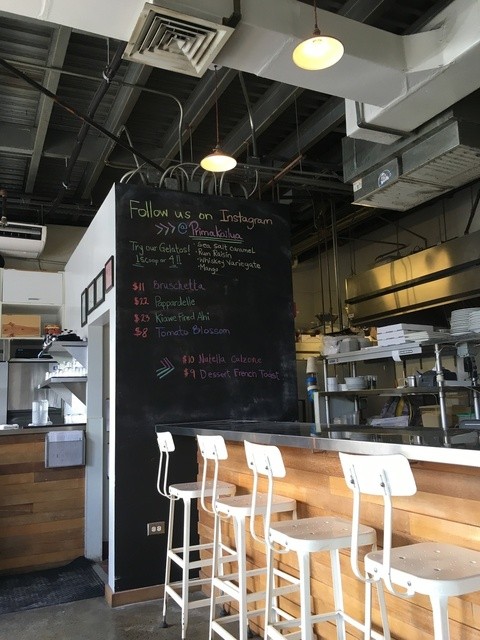 Follow us on Instagram
>>> @Primakailua
Try our Gelatos!
· Sea salt caramel
· Rum Raisin
· Whiskey Variegate
· Mango
$11 bruschetta
$22 Pappardelle
$23 Kiawe Fired Ahi
$8 Tomato Blossom
>>> $10 Nutella Calzone
$9 Dessert French Toast